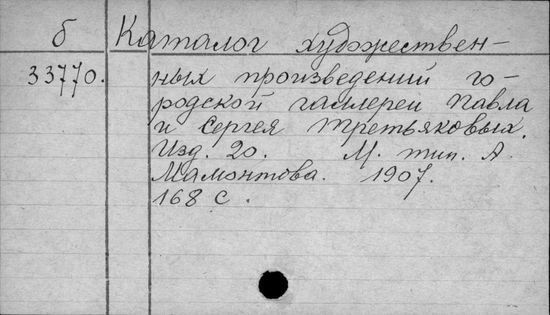 б Каталог художествен-
33770. ных произведений го-
родской галлереи Павла
и Сергея Третьяковых.
Изд. 20. М. тип. А.
Мамонтова. 1907.
168 с.